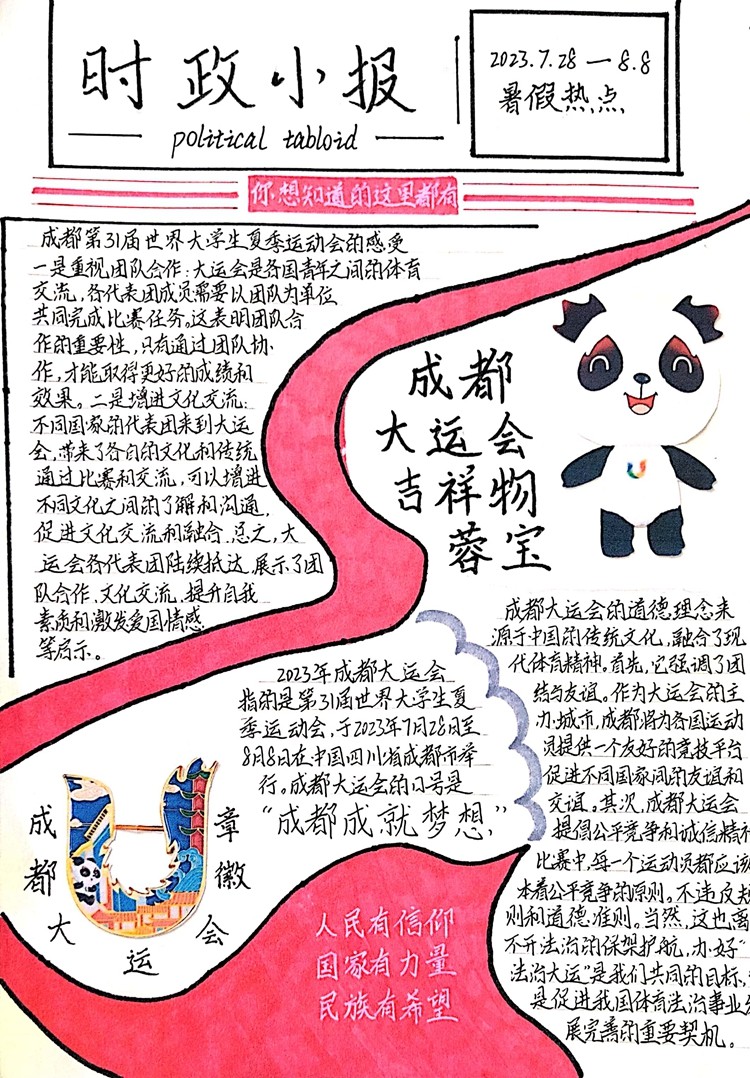 时政小报
political tabloid
2023.7.28—8.8
暑假热点
你想知道的这里都有
成都第31届世界大学生夏季运动会的感受
一是重视团队合作：大运会是各国青年之间的体育
交流，各代表团成员需要以团队为单位
共同完成比赛任务。这表明团队合
作的重要性，只有通过团队协
作，才能取得更好的成绩和
效果。二是增进文化交流：
不同国家的代表团来到大运
会，带来了各自的文化和传统
通过比赛和交流，可以增进
不同文化之间的了解和沟通，
促进文化交流和融合。总之，大
运会各代表团陆续抵达，展示了团
队合作、文化交流，提升自我
素质和激发爱国情感
等启示。
成都
大运会
吉祥物
蓉宝
2023年成都大运会
指的是第31届世界大学生夏
季运动会，于2023年7月28日至
8月8日在中国四川省成都市举
行。成都大运会的口号是
“成都成就梦想”
成都大运会章徽
人民有信仰
国家有力量
民族有希望
成都大运会的道德理念来
源于中国的传统文化，融合了现
代体育精神。首先，它强调了团
结与友谊。作为大运会的主
办城市，成都将为各国运动
员提供一个友好的竞技平台
促进不同国家间的友谊和
交谊。其次，成都大运会
提倡公平竞争和诚信精
比赛中，每一个运动员都应该
本着公平竞争的原则。不违反规
则和道德准则。当然，这也离
不开法治的保架护航，办好“
法治大运”是我们共同的目标，
是促进我国体育法治事业发
展完善的重要契机。